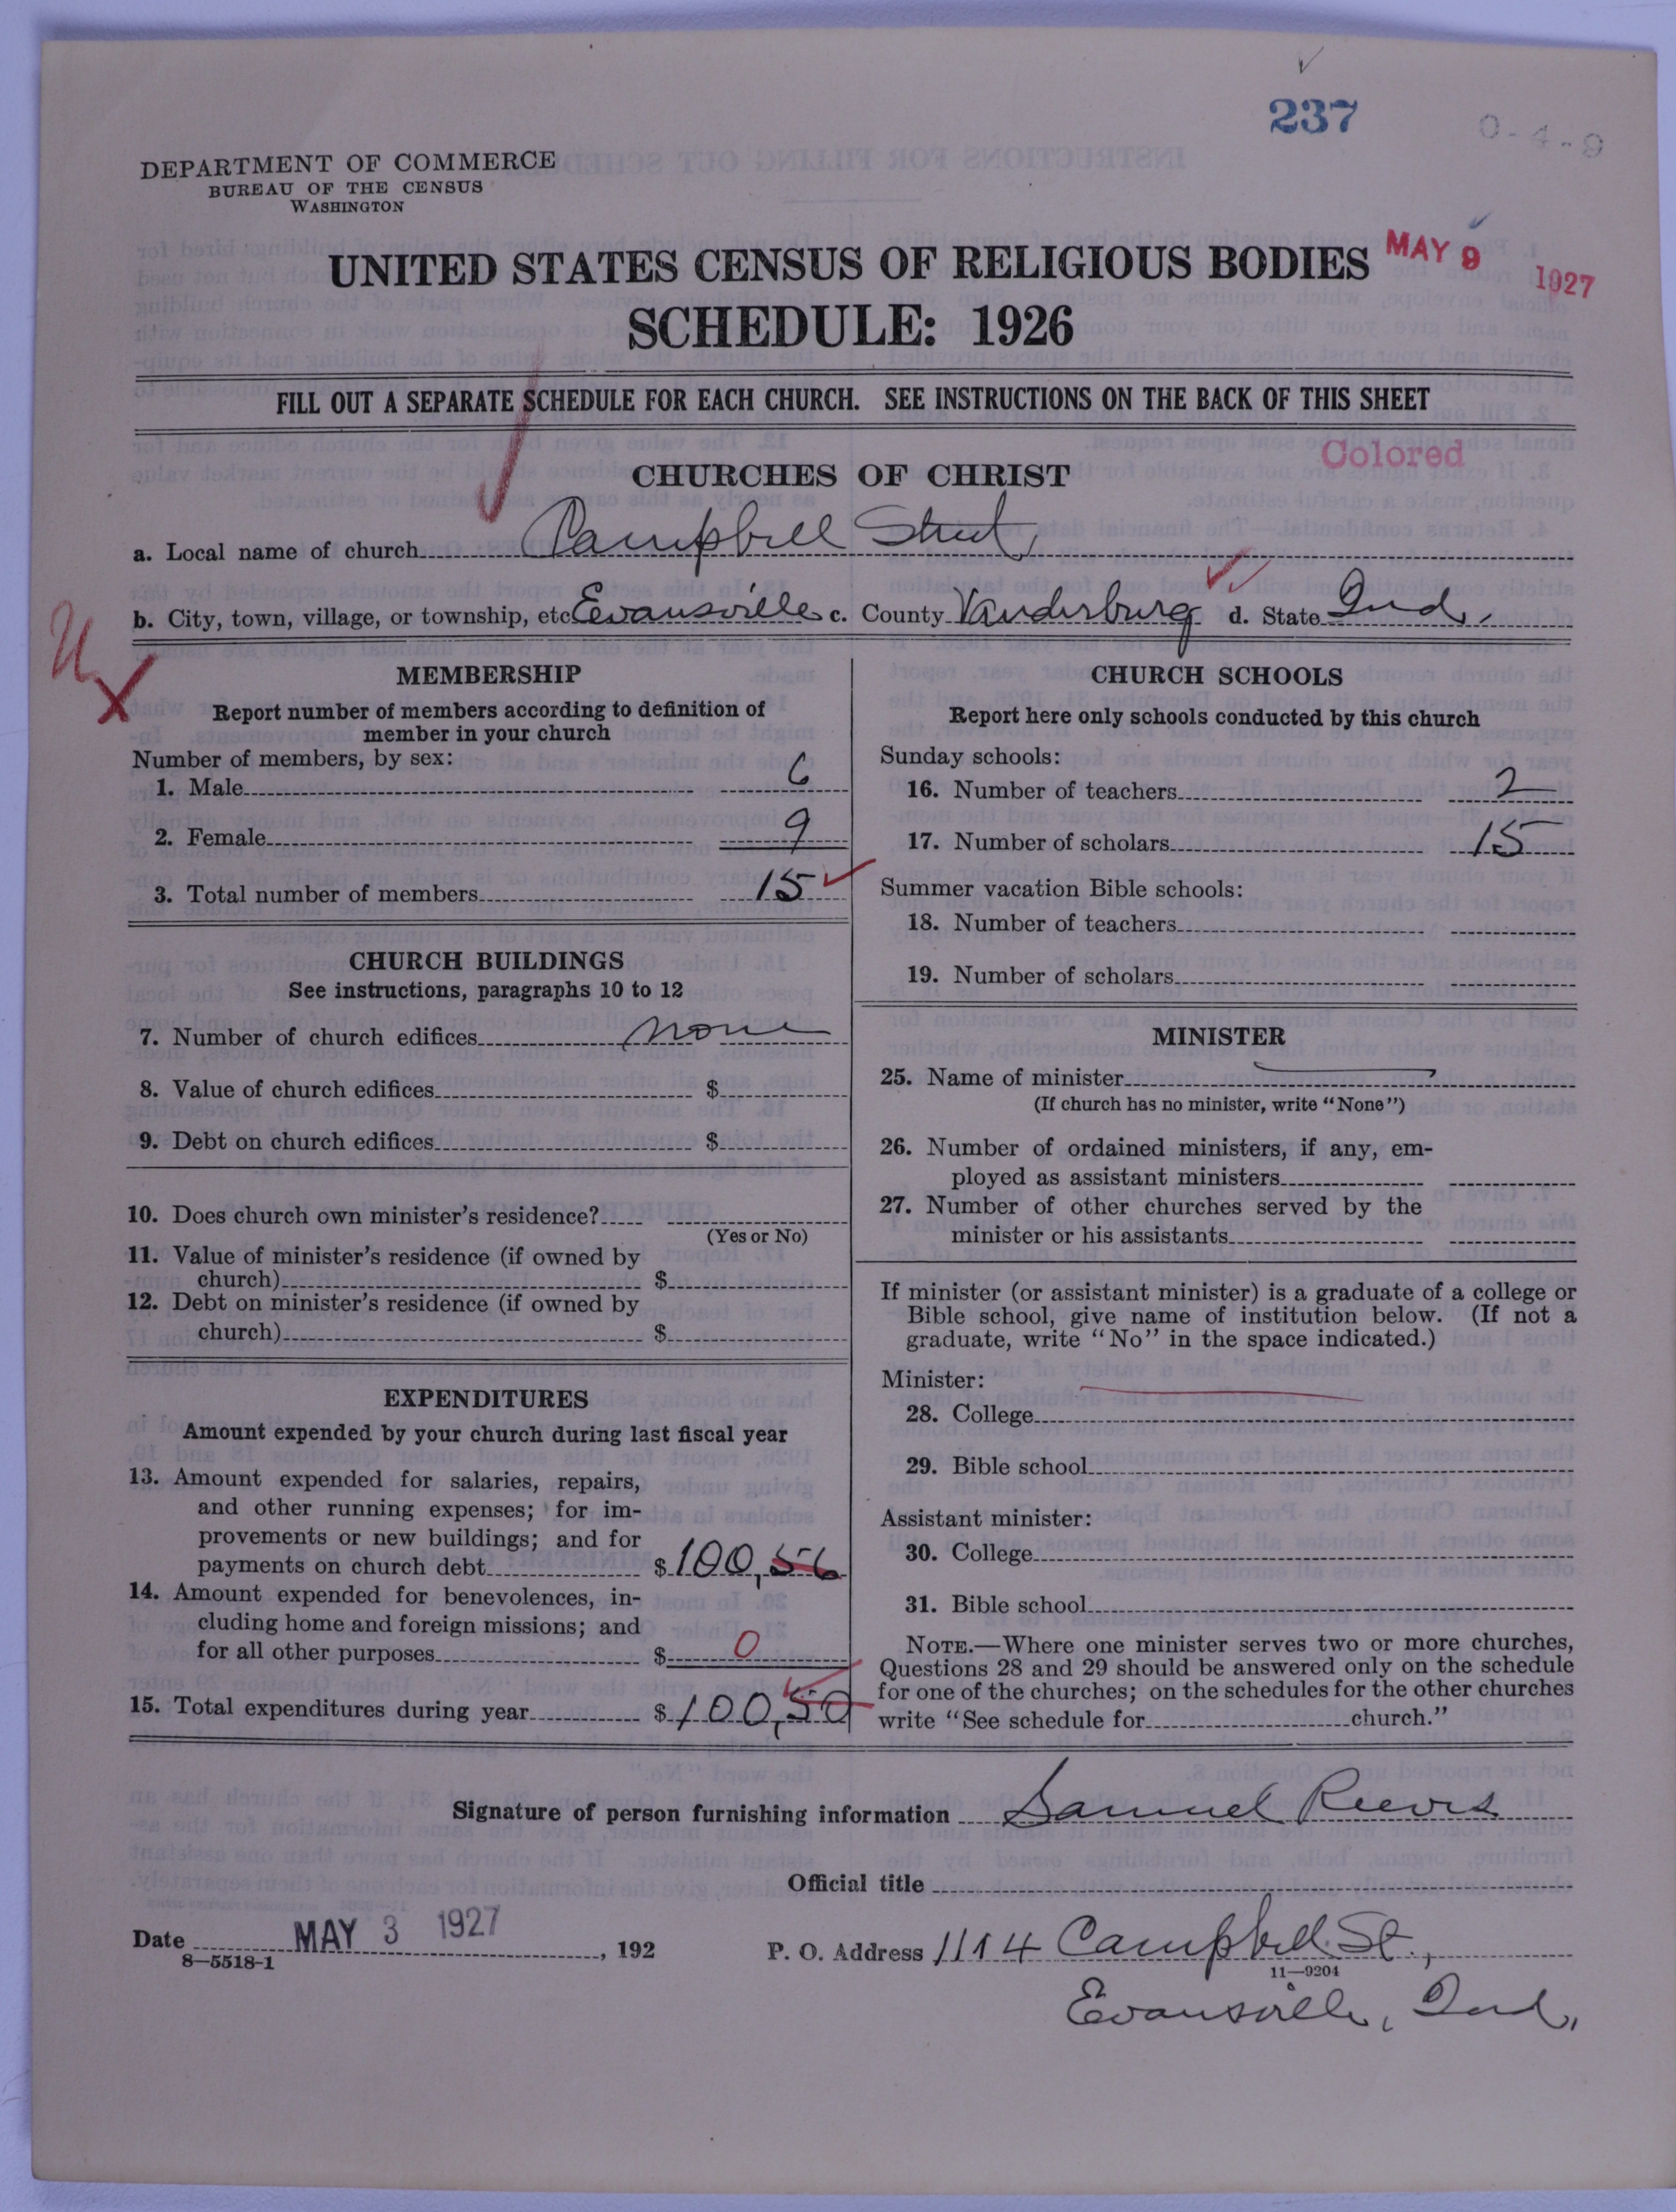 237
0-4-9
DEPARTMENT OF COMMERCE
BUREAU OF THE CENSUS
WASHINGTON
UNITED STATES CENSUS OF RELIGIOUS BODIES
MAY 9 1927
SCHEDULE: 1926
FILL OUT A SEPARATE SCHEDULE FOR EACH CHURCH. SEE INSTRUCTIONS ON THE BACK OF THIS SHEET
Colored
CHURCHES OF CHRIST
a. Local name of church Campbell Street
b. City, town, village, or township, etc Evansville c. County Vanderburg d. State Ind.
MEMBERSHIP
Report number of members according to definition of
member in your church
Number of members, by sex:
1. Male 6
2. Female 9
3. Total number of members 15
CHURCH BUILDINGS
See instructions, paragraphs 10 to 12
7. Number of church edifices none
8. Value of church edifices $
9. Debt on church edifices $
10. Does church own minister's residence?
(Yes or No)
11. Value of minister's residence (if owned by
church) $
12. Debt on minister's residence (if owned by
church) $
EXPENDITURES
Amount expended by your church during last fiscal year
13. Amount expended for salaries, repairs,
and other running expenses; for im-
provements or new buildings; and for
payments on church debt $100,56
14. Amount expended for benevolences, in-
cluding home and foreign missions; and
for all other purposes $ 0
15. Total expenditures during year $100,50
CHURCH SCHOOLS
Report here only schools conducted by this church
Sunday schools:
16. Number of teachers 2
17. Number of scholars 15
Summer vacation Bible schools:
18. Number of teachers
19. Number of scholars
MINISTER
25. Name of minister
(If church has no minister, write "None")
26. Number of ordained ministers, if any, em-
ployed as assistant ministers
27. Number of other churches served by the
minister or his assistants
If minister (or assistant minister) is a graduate of a college or
Bible school, give name of institution below. (If not a
graduate, write "No" in the space indicated.)
Minister:
28. College
29. Bible school
Assistant minister:
30. College
31. Bible school
NOTE.—Where one minister serves two or more churches,
Questions 28 and 29 should be answered only on the schedule
for one of the churches; on the schedules for the other churches
write "See schedule for church."
Signature of person furnishing information Samuel Reeves
Official title
Date MAY 3 1927, 192
8—5518-1
P. O. Address 1114 Campbell St.,
11—9204
Evansville, Ind.